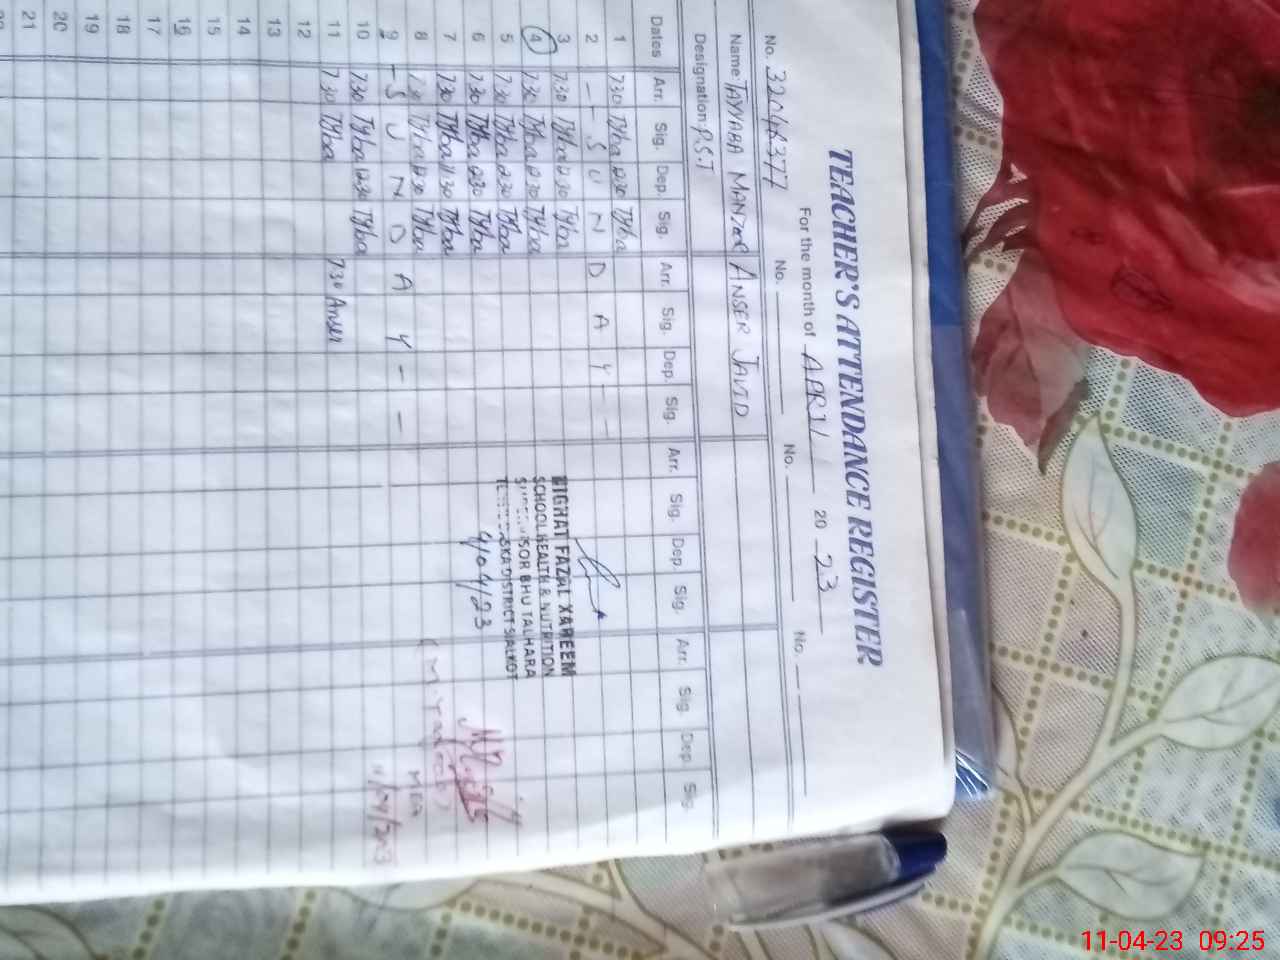 TEACHER'S ATTENDANCE REGISTER
For the month of APRIL 20 23
No. 32048377 No. No. No.
Name: TAYYABA MANZOOR ANSER JAVID
Designation: P.S.T
Dates Arr. Sig. Dep. Sig. Arr. Sig. Dep. Sig. Arr. Sig. Dep. Sig. Arr. Sig. Dep Sig.
1 730 Tyba 1230 Tyba
2 - - S U N D A Y - -
3 730 Tyba 1230 Tyba
4 730 Tyba 1230 Tyba
5 730 Tyba 1230 Tyba
6 730 Tyba 1230 Tyba
7 730 Tyba 1130 Tyba
8 730 Tyba 1230 Tyba
9 - S U N D A Y - -
10 730 Tyba 1230 Tyba
11 730 Tyba 730 Anser
12
13
14
15
16
17
18
19
20
21
NIGHAT FAZAL KAREEM
SCHOOL HEALTH & NUTRITION
SUPERVISOR BHU TALHARA
DISTRICT SIALKOT
4/04/23
MEA
11/04/2023
11-04-23 09:25